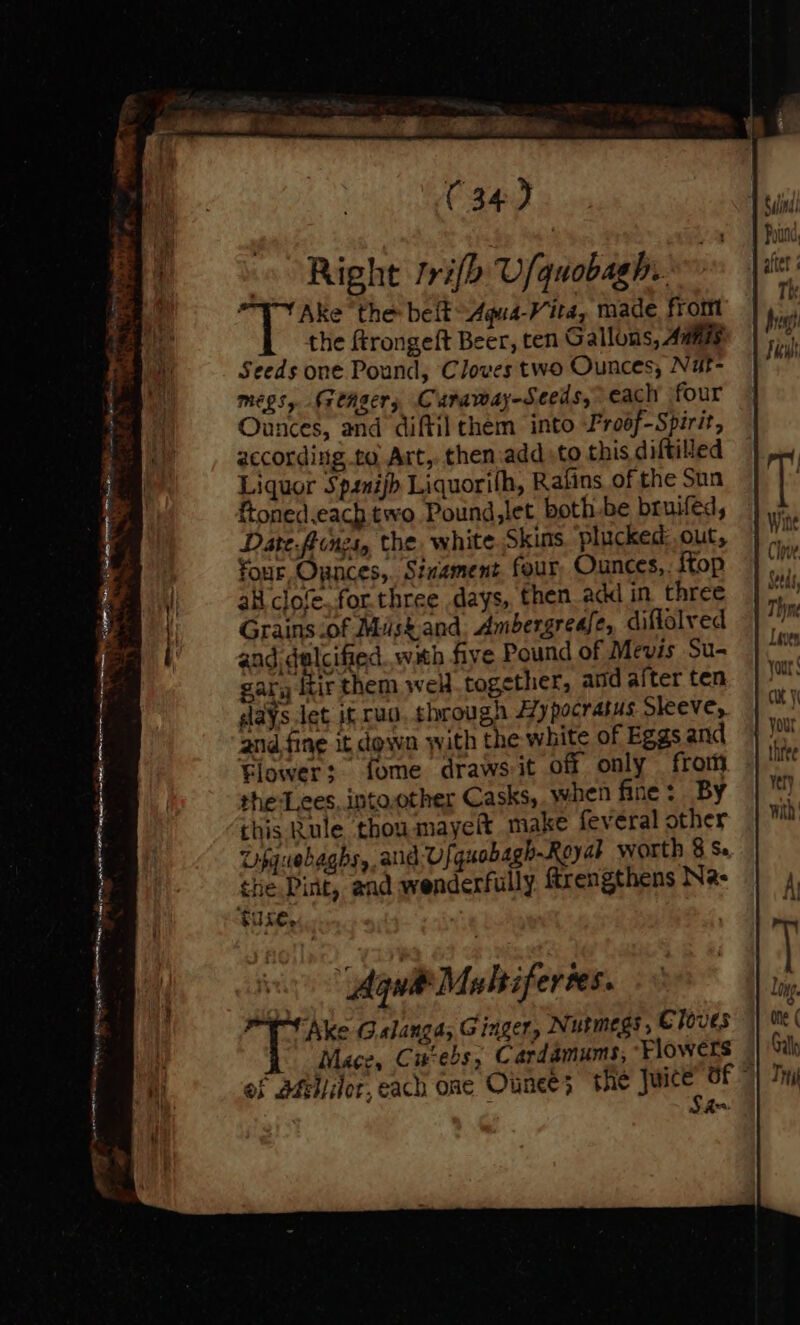 ( 34 )
Right Iriſh Uſquobagh.
TAke the beſt Aqua-Vitæ, made from
the ſtrongeſt Beer, ten Gallons, Annis
Seeds one Pound, Cloves two Ounces, Nut-
megs, Genger, Caraway-Seeds, each four
Ounces, and diſtil them into Proof-Spirit,
according to Art, then add to this diſtilled
Liquor Spaniſh Liquoriſh, Raſins of the Sun
ſtoned each two Pound, let both be bruiſed,
Date-ſtones, the white Skins plucked out,
four Ounces, Sinament four Ounces, ſtop
all cloſe for three days, then add in three
Grains of Musk and Ambergreaſe, diſſolved
and dulcified with five Pound of Mevis Su-
gar, ſtir them well together, and after ten
days let it run through Hypocratus Sleeve,
and fine it down with the white of Eggs and
Flower; ſome draws it off only from
the Lees, into other Casks, when fine: By
this Rule thou mayeſt make ſeveral other
Uſquebaghs, and Uſquobagh-Royal worth 8 s.
the Pint, and wonderfully ſtrengthens Na-
ture.
Aquæ Multifertes.
TAke Galanga, Ginger, Nutmegs, Cloves
Mace, Cubebs, Cardamums, Flowers
of Mellilot, each one Ounce; the Juice of
Sa-
Pound,
after
Wine
Clove
Seeds,
Thyme
Leaves
your
cut
your
three
very
With
A
T
Long
one
Gallo